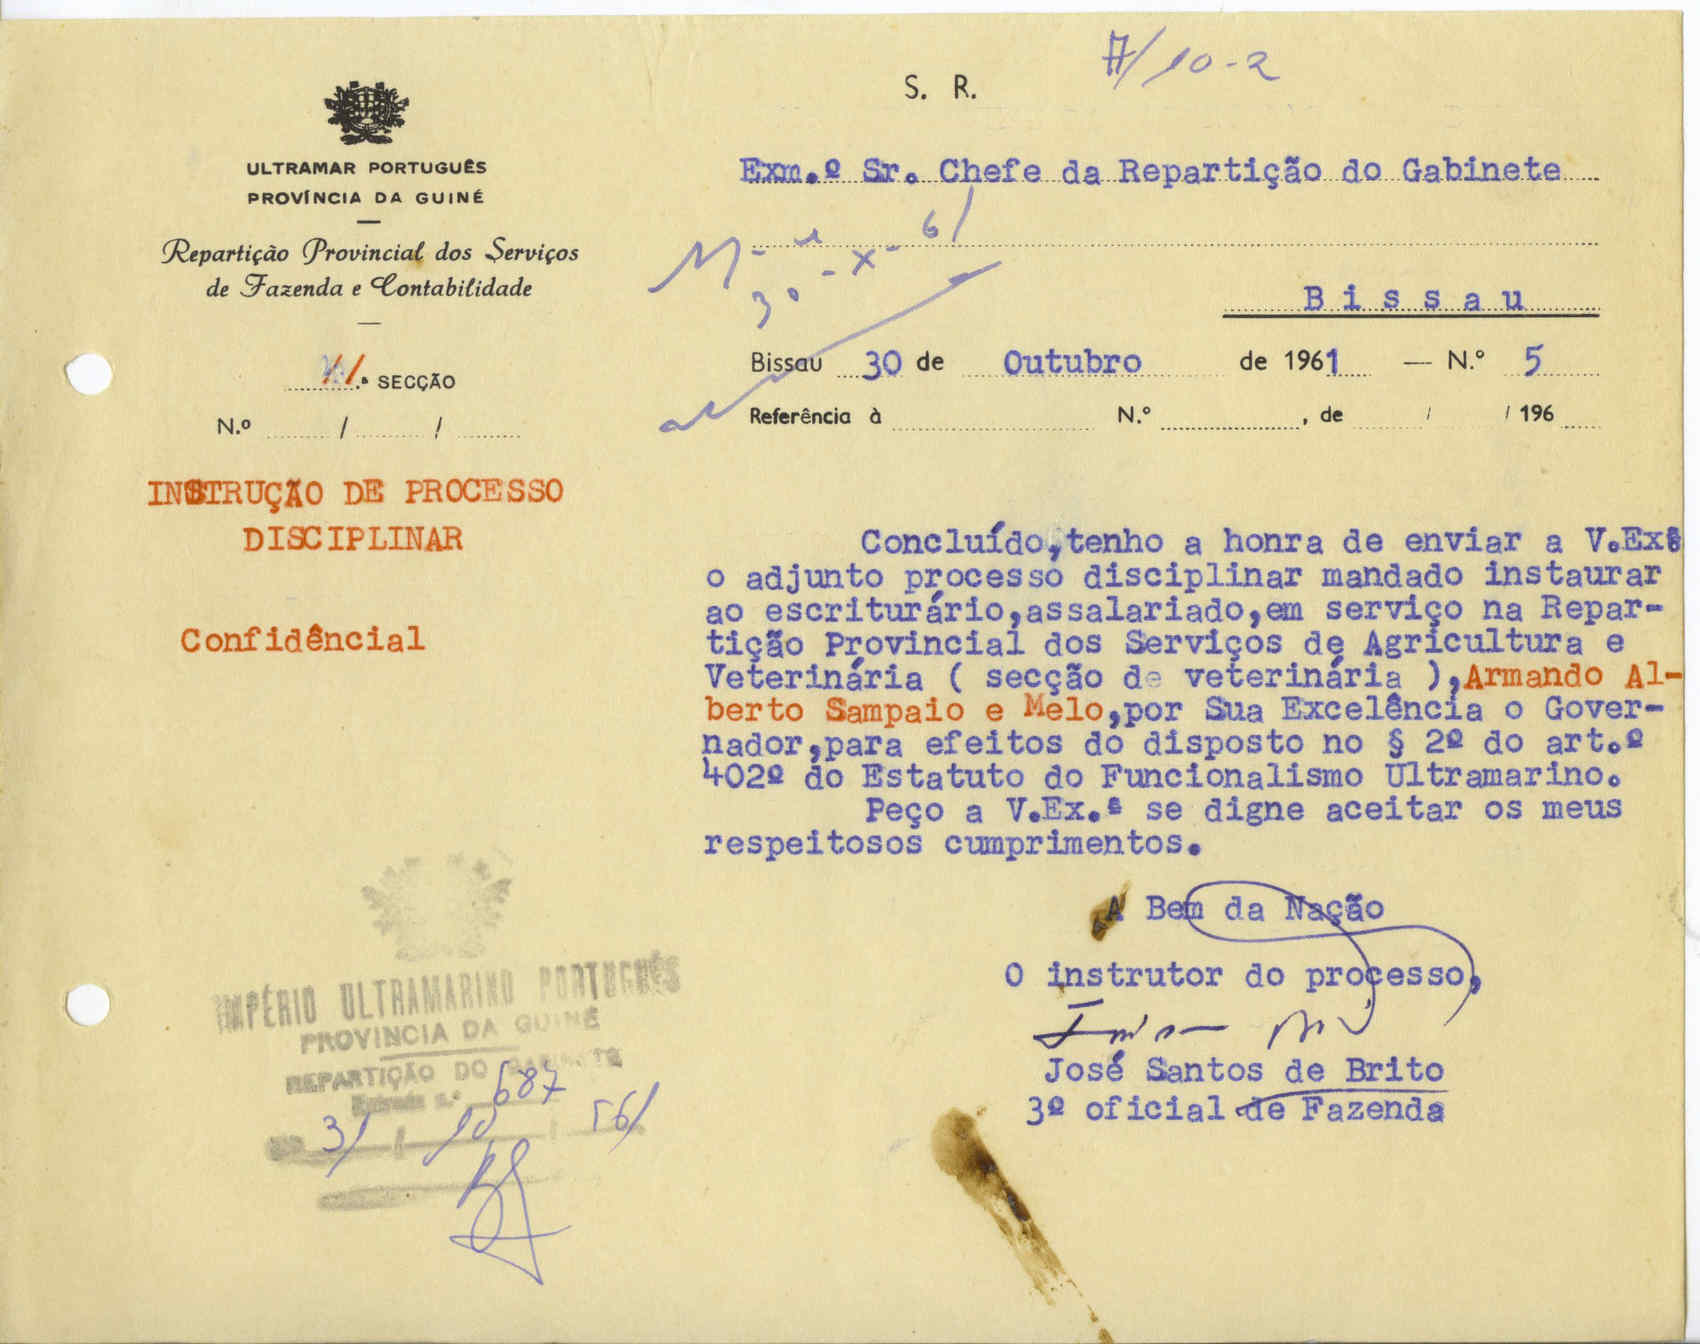 A/10-2
S. R.
ULTRAMAR PORTUGUÊS
PROVÍNCIA DA GUINÉ
Repartição Provincial dos Serviços
de Fazenda e Contabilidade
.ª SECÇÃO
N.º / /
INSTRUÇÃO DE PROCESSO
DISCIPLINAR
Confidêncial
Exm.º Sr. Chefe da Repartição do Gabinete
30-X-61
Bissau
Bissau 30 de Outubro de 1961 — N.º 5
Referência à N.º , de / / 196
Concluído,tenho a honra de enviar a V.Exª
o adjunto processo disciplinar mandado instaurar
ao escriturário,assalariado,em serviço na Repar-
tição Provincial dos Serviços de Agricultura e
Veterinária ( secção de veterinária ),Armando Al-
berto Sampaio e Melo,por Sua Excelência o Gover-
nador,para efeitos do disposto no § 2º do art.º
402º do Estatuto do Funcionalismo Ultramarino.
Peço a V.Ex.ª se digne aceitar os meus
respeitosos cumprimentos.
A Bem da Nação
O instrutor do processo,
José Santos de Brito
3º oficial de Fazenda
IMPÉRIO ULTRAMARINO PORTUGUÊS
PROVINCIA DA GUINÉ
REPARTIÇÃO DO GABINETE
Entrada n.º 687
31 / 10 / 561